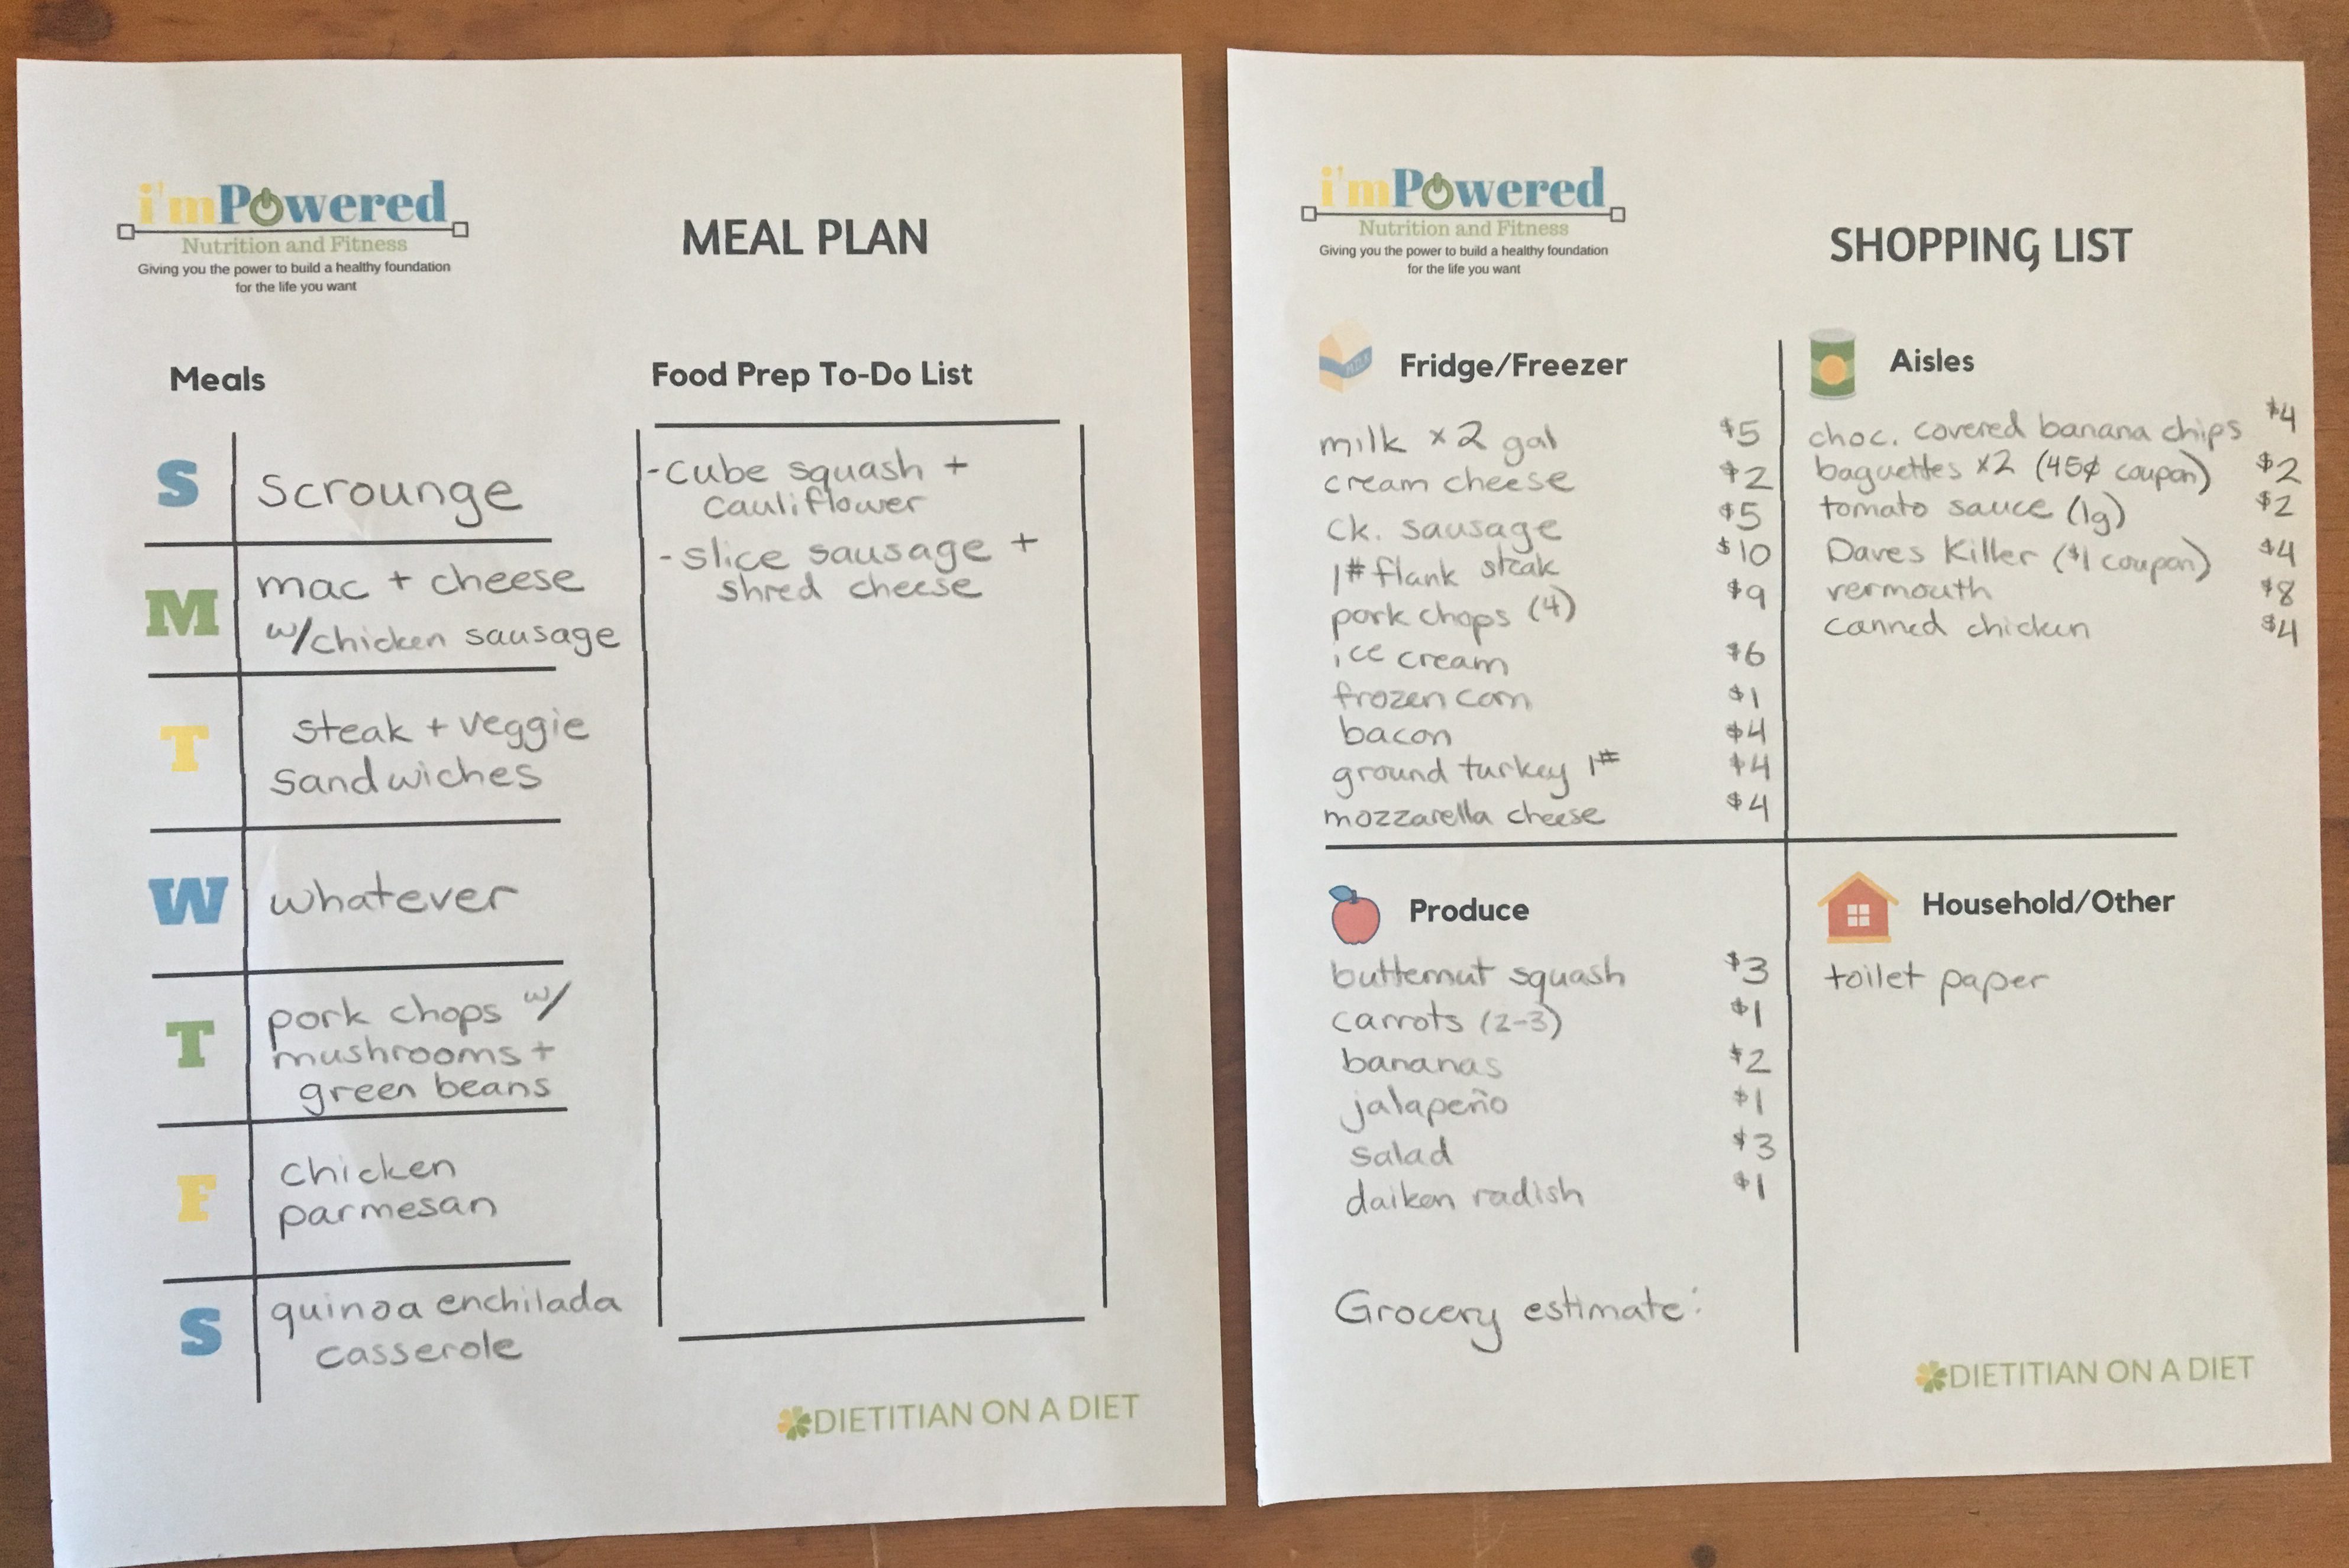 i'mPowered
Nutrition and Fitness
Giving you the power to build a healthy foundation
for the life you want
MEAL PLAN
Meals
S scrounge
M mac + cheese
w/chicken sausage
T steak + veggie
sandwiches
W whatever
T pork chops w/
mushrooms +
green beans
F chicken
parmesan
S quinoa enchilada
casserole
Food Prep To-Do List
-cube squash +
cauliflower
-slice sausage +
shred cheese
DIETITIAN ON A DIET
i'mPowered
Nutrition and Fitness
Giving you the power to build a healthy foundation
for the life you want
SHOPPING LIST
MILK
Fridge/Freezer
milk x2 gal $5
cream cheese $2
ck. sausage $5
1# flank steak $10
pork chops (4) $9
ice cream $6
frozen corn $1
bacon $4
ground turkey 1# $4
mozzarella cheese $4
Aisles
choc. covered banana chips $4
baguettes x2 (45¢ coupon) $2
tomato sauce (1g) $2
Daves Killer ($1 coupon) $4
vermouth $8
canned chicken $4
Produce
butternut squash $3
carrots (2-3) $1
bananas $2
jalapeño $1
salad $3
daiken radish $1
Grocery estimate:
Household/Other
toilet paper
DIETITIAN ON A DIET